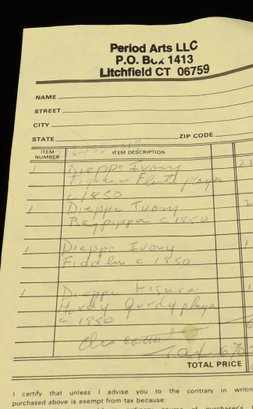 Period Arts LLC
P.O. Box 1413
Litchfield CT 06759
NAME
STREET
CITY
STATE ZIP CODE
ITEM NUMBER ITEM DESCRIPTION
1 Dieppe Ivory
Flute player
c 1850
1 Dieppe Ivory
Bagpiper c 1850
1 Dieppe Ivory
Fiddler c 1850
1 Dieppe Figure
Hurdy Gurdy player
c 1850
discount
Tax 6%
TOTAL PRICE
I certify that unless I advise you to the contrary in writing
purchased above is exempt from tax because: